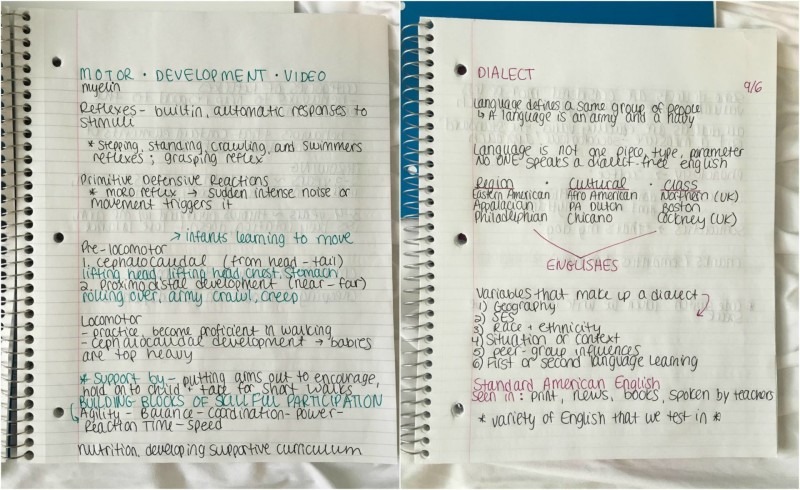 MOTOR · DEVELOPMENT · VIDEO
myelin
Reflexes - built in, automatic responses to
stimuli
* Stepping, standing, crawling, and swimmers
reflexes; grasping reflex
Primitive Defensive Reactions
* moro reflux → sudden intense noise or
movement triggers it
→ infants learning to move
Pre-locomotor
1. cephalocaudal (from head-tail)
lifting head, lifting head, chest, stomach
2. Proximodistal development (near-far)
rolling over, army crawl, creep
Locomotor
- practice, become proficient in walking
- cephalocaudal development → babies
are top heavy
* Support by - putting arms out to encourage,
hold onto child + take for short walks
BUILDING BLOCKS OF SKILLFUL PARTICIPATION
Agility - Balance - Coordination - Power -
Reaction Time - Speed
nutrition, developing supportive curriculum
DIALECT
9/6
Language defines a same group of people
↳ A language is an army and a navy
Language is not one piece, type, parameter
NO ONE speaks a dialect-free english
Region · Cultural · Class
Eastern American Afro American Northern (UK)
Appalacian PA Dutch Boston
Philadelphian Chicano Cockney (UK)
ENGLISHES
Variables that make up a dialect
1) Geography
2) SES
3) Race + ethnicity
4) Situation or context
5) peer-group influences
6) First or second language learning
Standard American English
seen in: print, news, books, spoken by teachers
* variety of English that we test in *